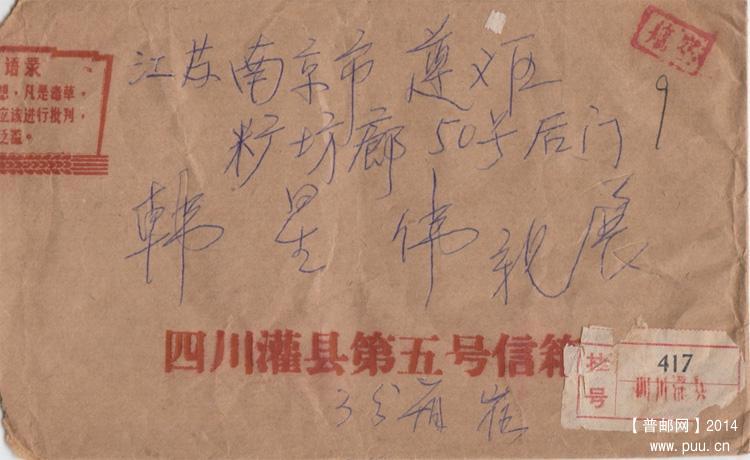 语录
想，凡是毒草，
应该进行批判，
泛滥。
江苏南京市 遵义区
籵坊廊50号后门
9
韩星伟 亲展
四川灌县第五号信箱
挂号
417
四川灌县
3分
【普邮网】2014
www.puu.cn